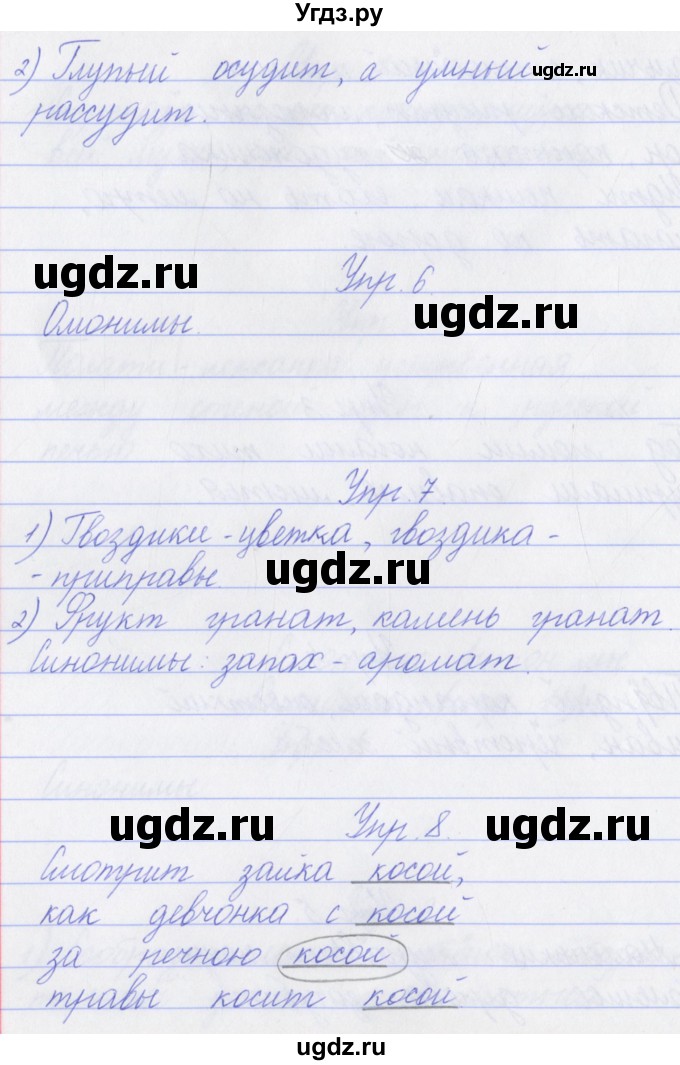 Угдз.ру
2) Глупый осудит, а умный
ugdz.ru
рассудит.
ugdz.ru
Упр. 6.
Омонимы.
ugdz.ru
Упр. 7
1) Гвоздики - цветка, гвоздика -
- приправы.
ugdz.ru
2) Фрукт гранат, камень гранат.
Синонимы: запах - аромат.
ugdz.ru
Упр. 8.
ugdz.ru
Смотрит зайка косой,
как девчонка с косой
за речною косой
травы косит косой
ugdz.ru